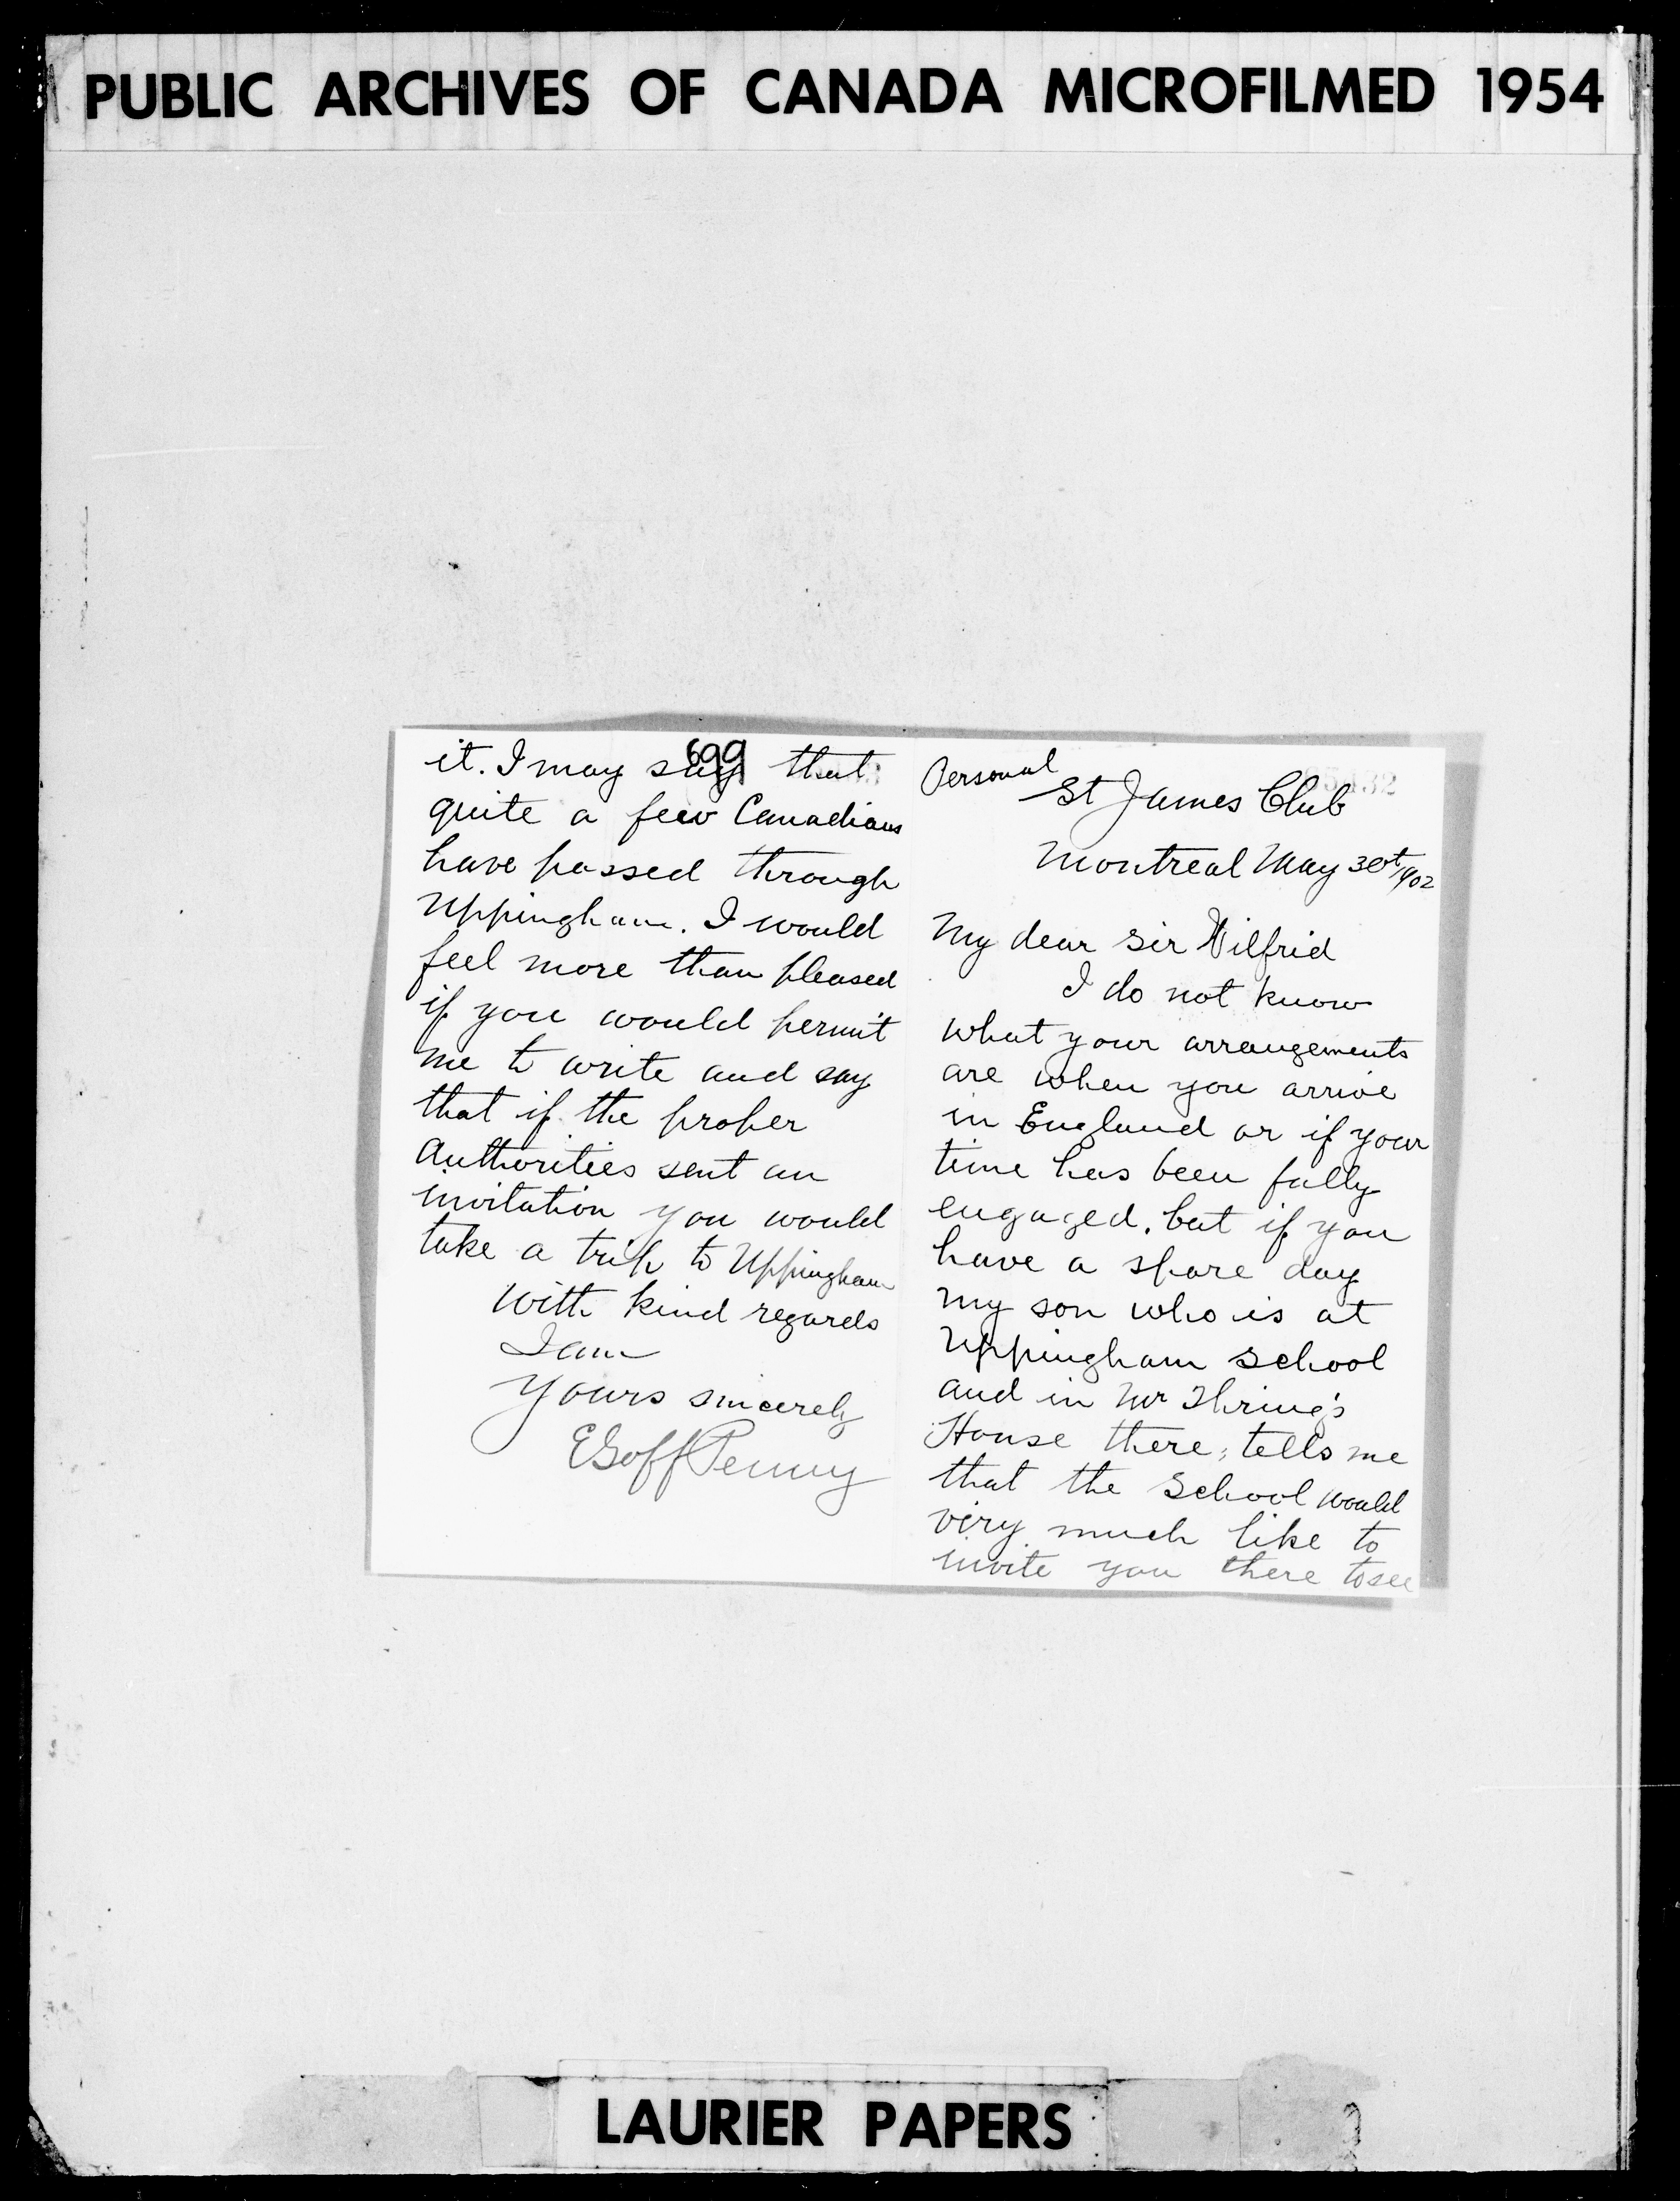 PUBLIC ARCHIVES OF CANADA MICROFILMED 1954
Personal
St James Club
Montreal May 30t/902
My dear Sir Wilfrid
I do not know
what your arrangements
are when you arrive
in England or if your
time has been fully
engaged, but if you
have a spare day
my son who is at
Uppingham School
and in Mr Thring's
House there, tells me
that the School would
very much like to
invite you there to see
699
it. I may say that
quite a few Canadians
have passed through
Uppingham. I would
feel more than pleased
if you would permit
me to write and say
that if the proper
Authorities sent an
invitation you would
take a trip to Uppingham
With kind regards
I am
Yours sincerely
E Goff Penny
LAURIER PAPERS